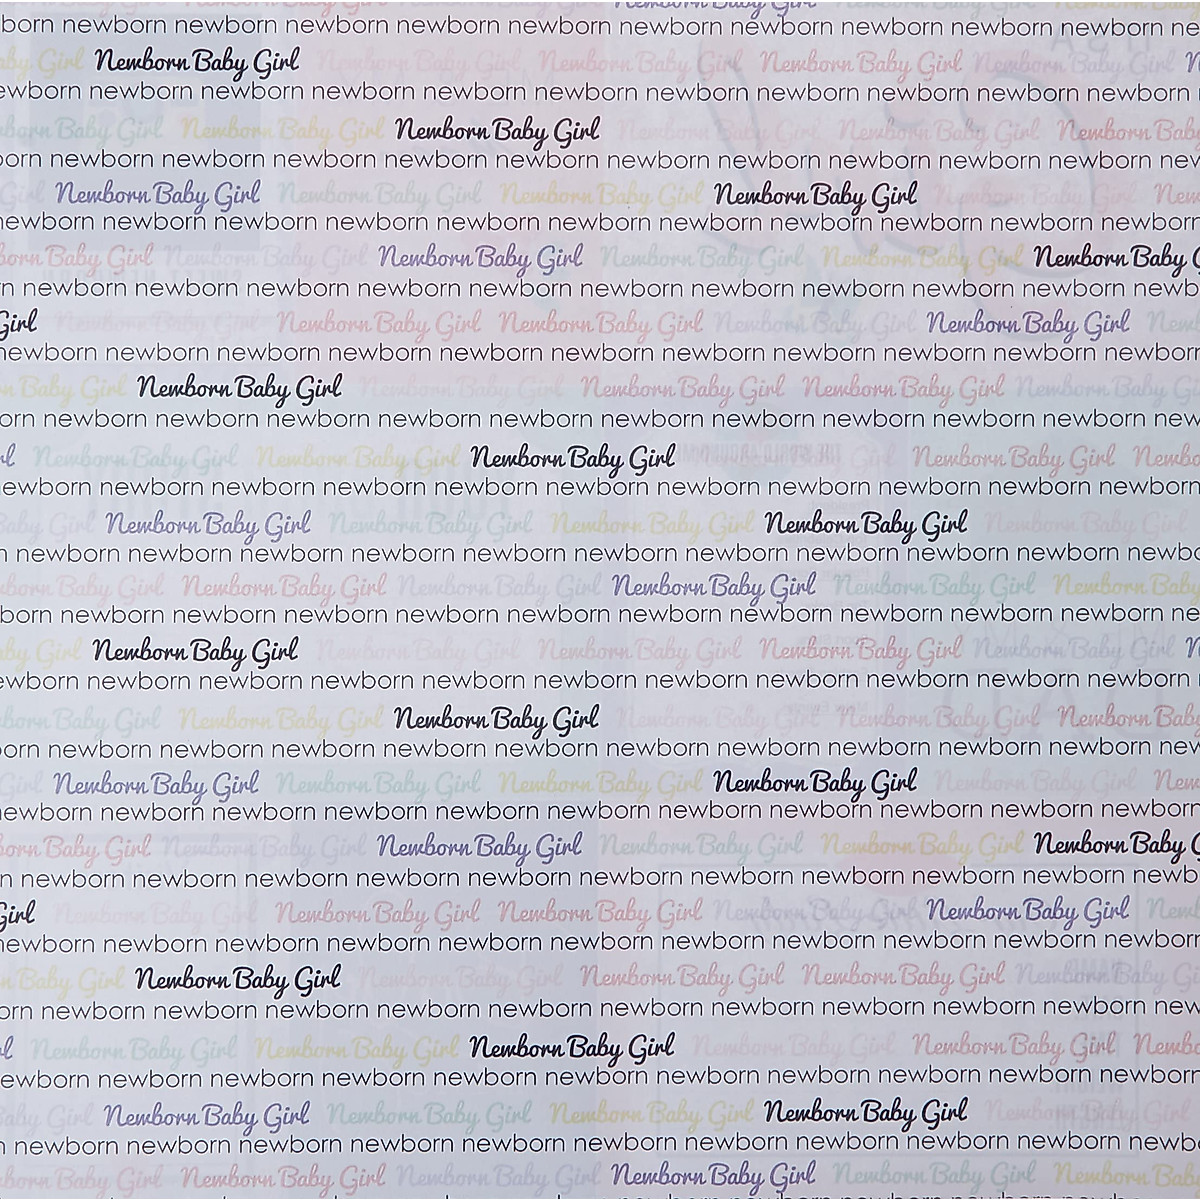 Newborn Baby Girl Newborn Baby Girl
born newborn newborn newborn newborn newborn newborn newborn newborn newborn newborn ne
by Girl Newborn Baby Girl Newborn Baby Girl Newborn Baby Girl Newborn Baby Girl Newborn Baby Girl N
ewborn newborn newborn newborn newborn newborn newborn newborn newborn newborn newborn
born Baby Girl Newborn Baby Girl Newborn Baby Girl Newborn Baby Girl Newborn Baby Girl Newborn Baby
born newborn newborn newborn newborn newborn newborn newborn newborn newborn newborn nev
Girl Newborn Baby Girl Newborn Baby Girl Newborn Baby Girl Newborn Baby Girl Newborn Baby Girl New
newborn newborn newborn newborn newborn newborn newborn newborn newborn newborn newborn
born Baby Girl Newborn Baby Girl Newborn Baby Girl Newborn Baby Girl Newborn Baby Girl Newborn Baby G
n newborn newborn newborn newborn newborn newborn newborn newborn newborn newborn newb
Girl Newborn Baby Girl Newborn Baby Girl Newborn Baby Girl Newborn Baby Girl Newborn Baby Girl New
newborn newborn newborn newborn newborn newborn newborn newborn newborn newborn newborn
n Baby Girl Newborn Baby Girl Newborn Baby Girl Newborn Baby Girl Newborn Baby Girl Newborn Baby Girl
orn newborn newborn newborn newborn newborn newborn newborn newborn newborn newborn new
l Newborn Baby Girl Newborn Baby Girl Newborn Baby Girl Newborn Baby Girl Newborn Baby Girl Newbo
ewborn newborn newborn newborn newborn newborn newborn newborn newborn newborn newborn
Baby Girl Newborn Baby Girl Newborn Baby Girl Newborn Baby Girl Newborn Baby Girl Newborn Baby Girl
n newborn newborn newborn newborn newborn newborn newborn newborn newborn newborn newbo
born Baby Girl Newborn Baby Girl Newborn Baby Girl Newborn Baby Girl Newborn Baby Girl Newborn Baby
born newborn newborn newborn newborn newborn newborn newborn newborn newborn newborn ne
by Girl Newborn Baby Girl Newborn Baby Girl Newborn Baby Girl Newborn Baby Girl Newborn Baby Girl N
ewborn newborn newborn newborn newborn newborn newborn newborn newborn newborn newborn
born Baby Girl Newborn Baby Girl Newborn Baby Girl Newborn Baby Girl Newborn Baby Girl Newborn Baby
born newborn newborn newborn newborn newborn newborn newborn newborn newborn newborn new
Girl Newborn Baby Girl Newborn Baby Girl Newborn Baby Girl Newborn Baby Girl Newborn Baby Girl New
newborn newborn newborn newborn newborn newborn newborn newborn newborn newborn newborn
born Baby Girl Newborn Baby Girl Newborn Baby Girl Newborn Baby Girl Newborn Baby Girl Newborn Baby G
n newborn newborn newborn newborn newborn newborn newborn newborn newborn newborn newb
Girl Newborn Baby Girl Newborn Baby Girl Newborn Baby Girl Newborn Baby Girl Newborn Baby Girl New
newborn newborn newborn newborn newborn newborn newborn newborn newborn newborn newborn
n Baby Girl Newborn Baby Girl Newborn Baby Girl Newborn Baby Girl Newborn Baby Girl Newborn Baby Girl
orn newborn newborn newborn newborn newborn newborn newborn newborn newborn newborn new
l Newborn Baby Girl Newborn Baby Girl Newborn Baby Girl Newborn Baby Girl Newborn Baby Girl Newbo
ewborn newborn newborn newborn newborn newborn newborn newborn newborn newborn newborn
Baby Girl Newborn Baby Girl Newborn Baby Girl Newborn Baby Girl Newborn Baby Girl Newborn Baby Girl
n newborn newborn newborn newborn newborn newborn newborn newborn newborn newborn newbo
born Baby Girl Newborn Baby Girl Newborn Baby Girl Newborn Baby Girl Newborn Baby Girl Newborn Baby